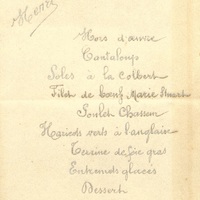 Menu
Hors d'œuvre
Cantaloup
Soles à la Colbert
Filet de bœuf Marie Stuart
Poulet Chasseur
Haricots verts à l'anglaise
Terrine de foie gras
Entremets glacés
Dessert